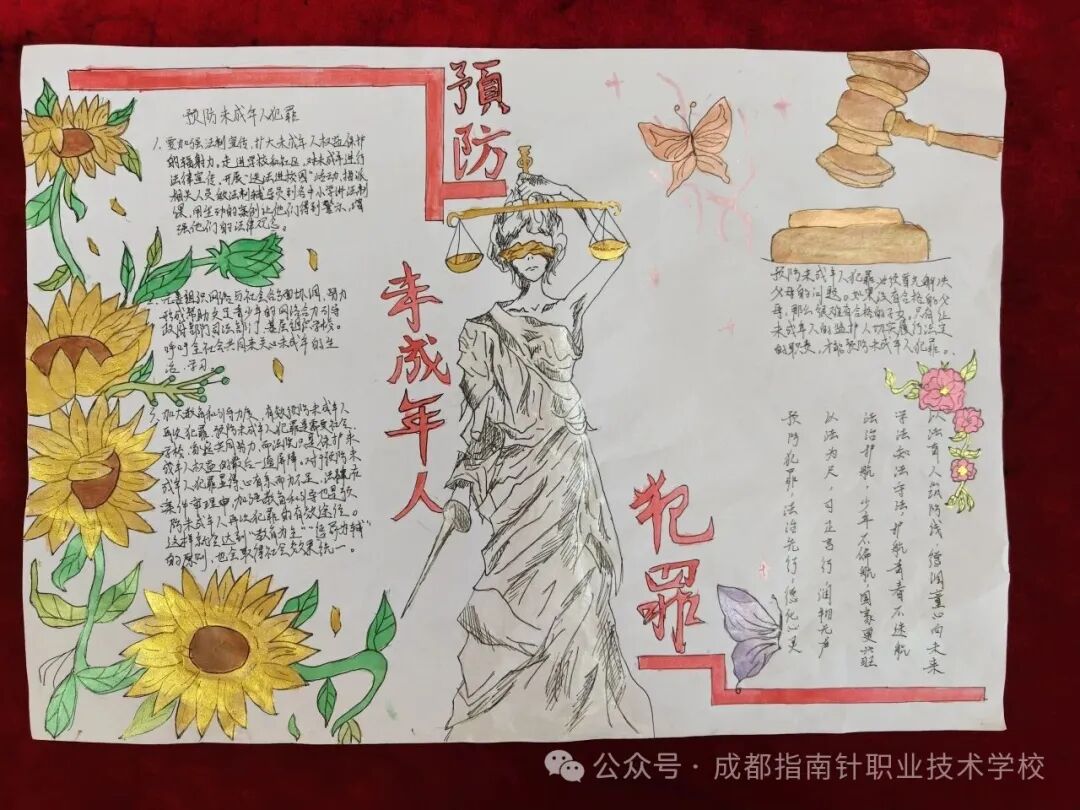 預防
未成年人
犯罪
预防未成年人犯罪
1、要加强法制宣传,扩大未成年人权益保护
的辐射力。走进学校和社区,对未成年进行
法律宣传、开展“送法进校园”活动,指派
相关人员做法制辅导员到各中小学讲法制
课,用生动的案例让他们得到警示,增
强他们的法律观念。
组织网络与社会各方面协调,努力
形成帮助失足青少年的网络合力引导
政府部门司法部门、基层组织、学校。
呼吁全社会共同来关心未成年的生
活、学习。
3、加大教育和引导力度,有效预防未成年人
再次犯罪。预防未成年人犯罪是需要社会、
学校、家庭共同努力,而法院只是保护未
成年人权益的最后一道屏障。对于预防未
成年人犯罪显得心有余而力不足,法院在
案件审理中,加强教育和引导也是预
防未成年人再次犯罪的有效途径。
这样就会达到“教育为主”“惩罚为辅”
的原则,也会取得社会效果统一。
预防未成年人犯罪,必须首先解决
父母的问题。如果没有合格的父
母,那么很难有合格的子女,只有让
未成年人的监护人切实履行法定
的职责,才能预防未成年人犯罪。
以法育人筑防线,德润童心向未来
学法知法守法,护航青春不迷航
法治护航,少年不偏航,国家更兴旺
以法为尺,可正言行,润物无声
预防犯罪,法治先行,德化心灵
公众号·成都指南针职业技术学校